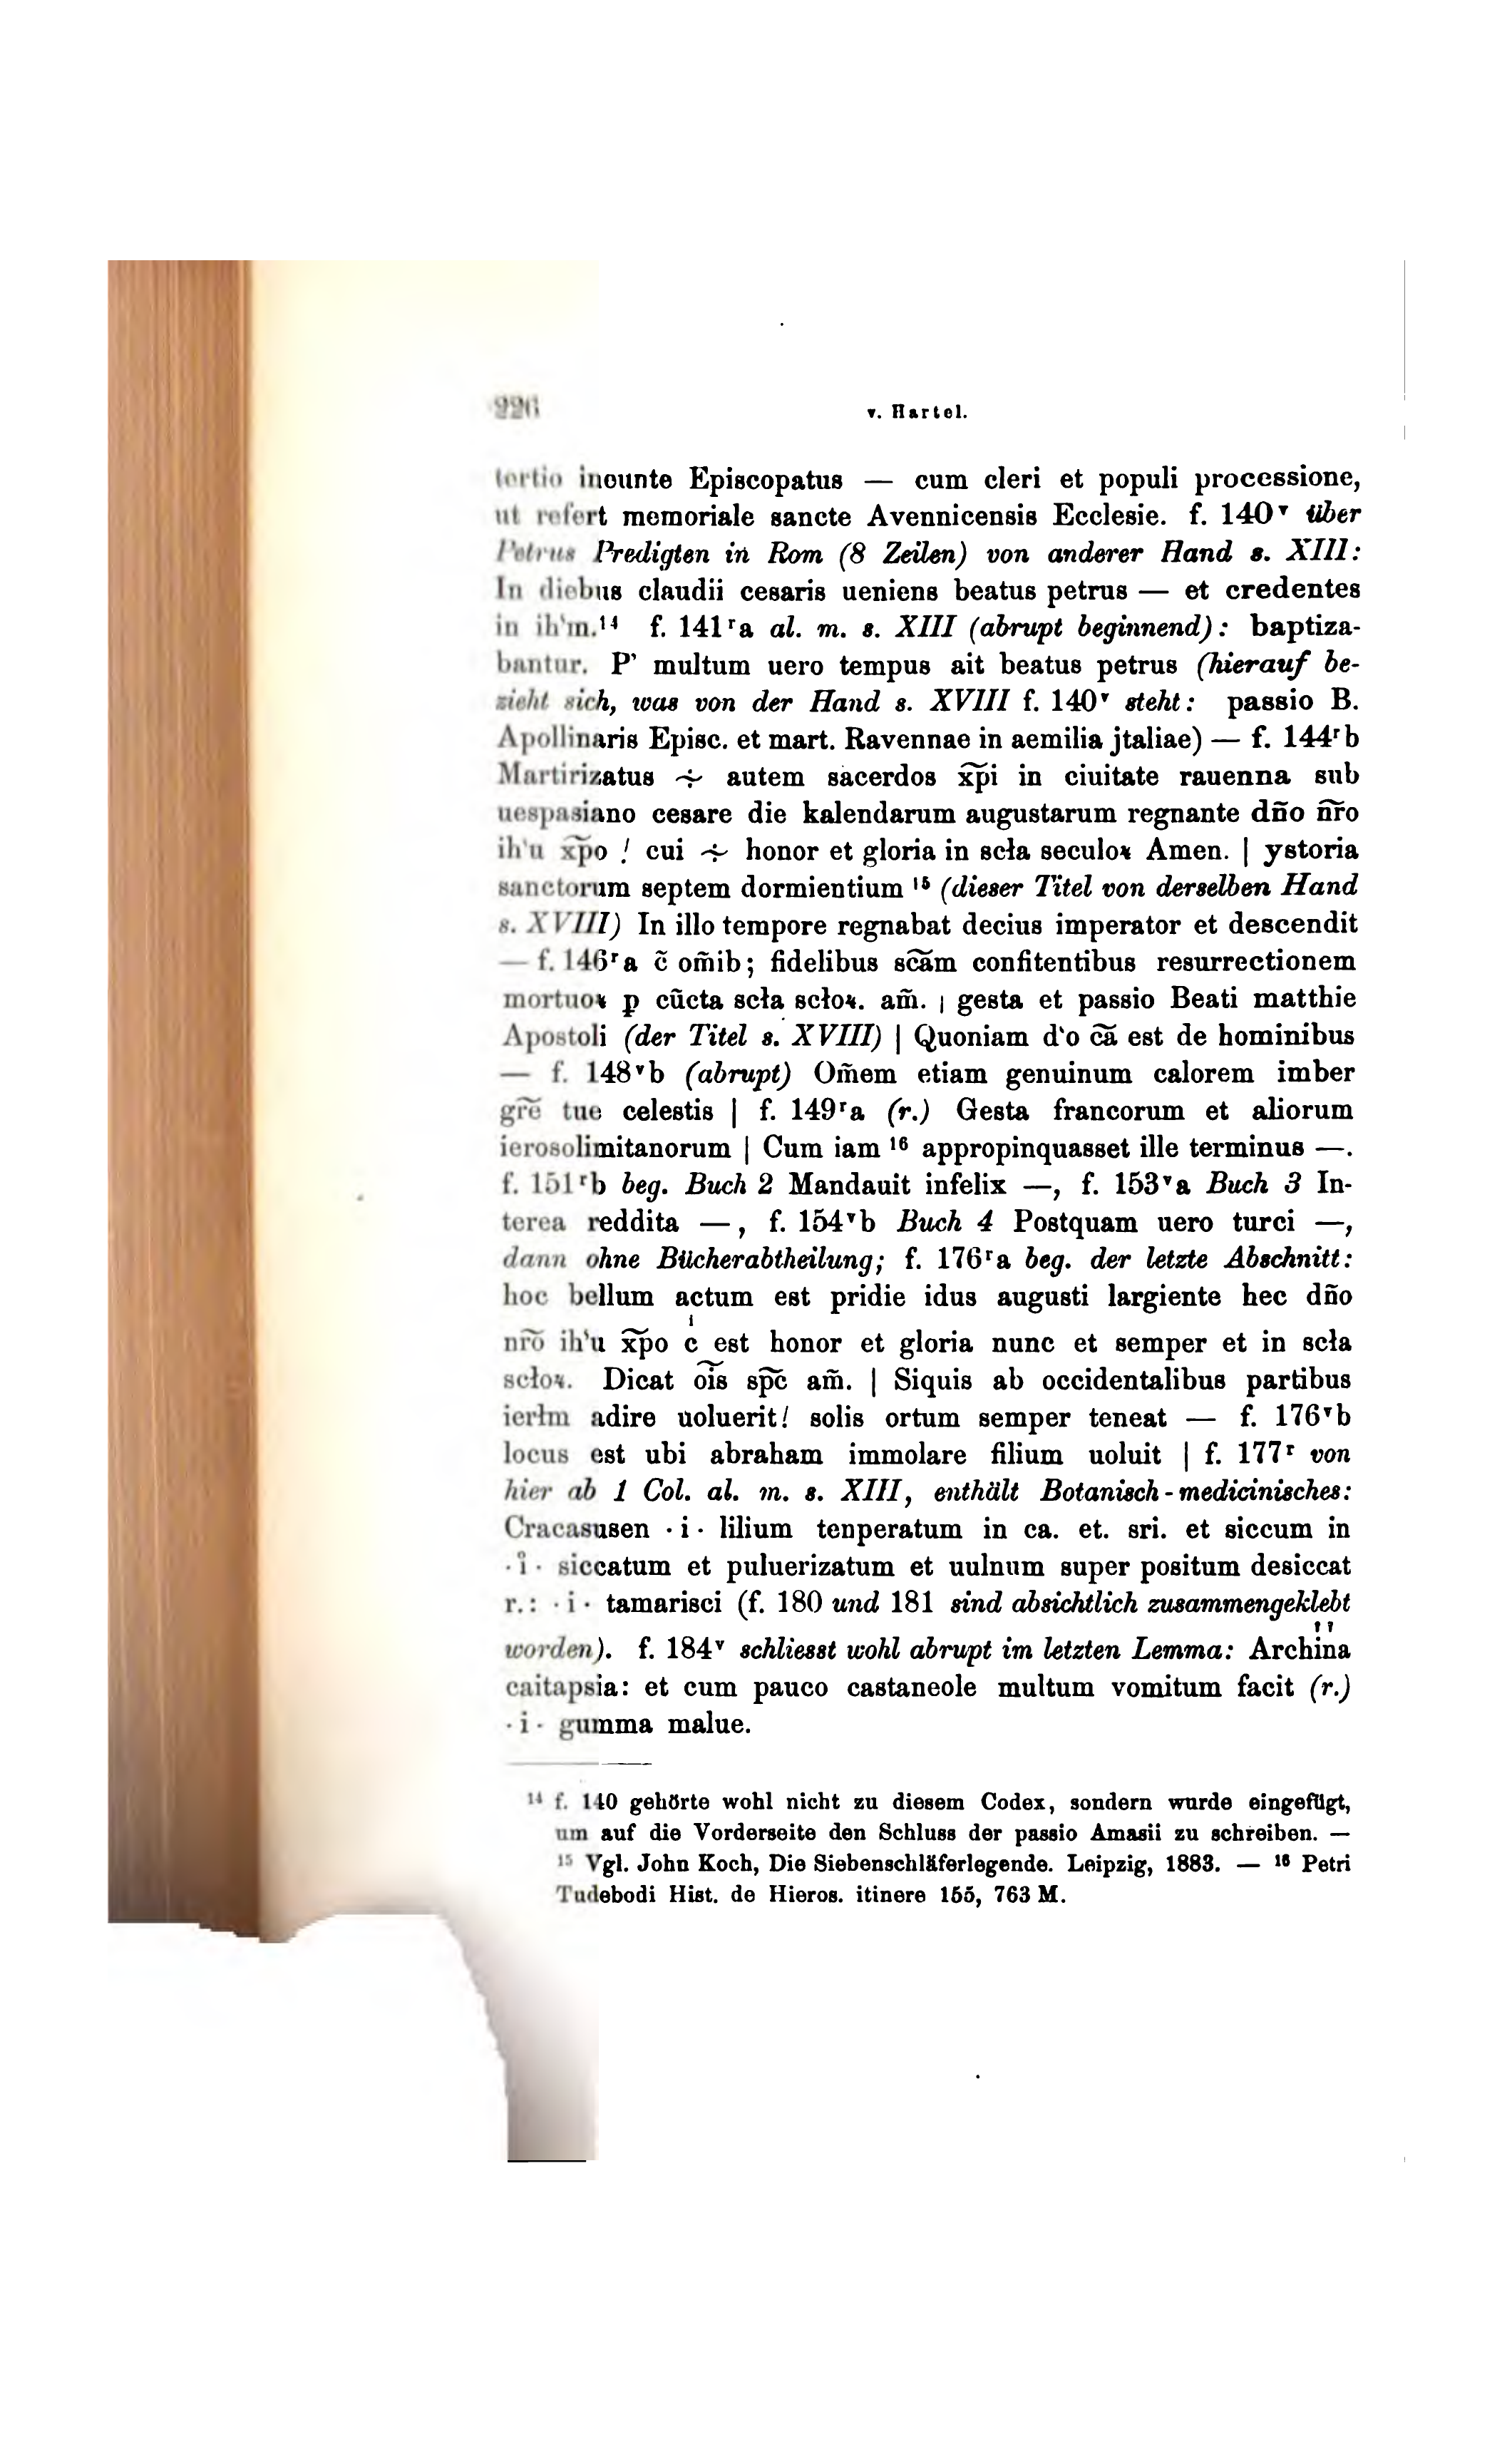 226 v. Hartel.
tertio ineunte Episcopatus — cum cleri et populi processione,
ut refert memoriale sancte Avennicensis Ecclesie. f. 140ᵛ über
Petrus Predigten in Rom (8 Zeilen) von anderer Hand s. XIII:
In diebus claudii cesaris ueniens beatus petrus — et credentes
in ih'm.¹⁴ f. 141ʳa al. m. s. XIII (abrupt beginnend): baptiza-
bantur. P' multum uero tempus ait beatus petrus (hierauf be-
zieht sich, was von der Hand s. XVIII f. 140ᵛ steht: passio B.
Apollinaris Episc. et mart. Ravennae in aemilia jtaliae) — f. 144ʳb
Martirizatus ∻ autem sacerdos x͞pi in ciuitate rauenna sub
uespasiano cesare die kalendarum augustarum regnante dño n͞ro
ih'u x͞po ! cui ∻ honor et gloria in scła seculoꝝ Amen. | ystoria
sanctorum septem dormientium ¹⁵ (dieser Titel von derselben Hand
s. XVIII) In illo tempore regnabat decius imperator et descendit
— f. 146ʳa c̃ om̃ib; fidelibus sc͞am confitentibus resurrectionem
mortuoꝝ ꝑ cũcta scła scłoꝝ. am̃. | gesta et passio Beati matthie
Apostoli (der Titel s. XVIII) | Quoniam d'o c͞a est de hominibus
— f. 148ᵛb (abrupt) Om̃em etiam genuinum calorem imber
gr͞e tue celestis | f. 149ʳa (r.) Gesta francorum et aliorum
ierosolimitanorum | Cum iam ¹⁶ appropinquasset ille terminus —.
f. 151ʳb beg. Buch 2 Mandauit infelix —, f. 153ᵛa Buch 3 In-
terea reddita —, f. 154ᵛb Buch 4 Postquam uero turci —,
dann ohne Bücherabtheilung; f. 176ʳa beg. der letzte Abschnitt:
hoc bellum actum est pridie idus augusti largiente hec dño
nr͞o ih'u x͞po cͥ est honor et gloria nunc et semper et in scła
scłoꝝ. Dicat o͞is sp͞c am̃. | Siquis ab occidentalibus partibus
ierłm adire uoluerit! solis ortum semper teneat — f. 176ᵛb
locus est ubi abraham immolare filium uoluit | f. 177ʳ von
hier ab 1 Col. al. m. s. XIII, enthält Botanisch-medicinisches:
Cracasusen · i · lilium tenperatum in ca. et. sri. et siccum in
· i̊ · siccatum et puluerizatum et uulnum super positum desiccat
r.: · i · tamarisci (f. 180 und 181 sind absichtlich zusammengeklebt
worden). f. 184ᵛ schliesst wohl abrupt im letzten Lemma: Archi̍n̍a
caitapsia: et cum pauco castaneole multum vomitum facit (r.)
· i · gumma malue.
¹⁴ f. 140 gehörte wohl nicht zu diesem Codex, sondern wurde eingefügt,
um auf die Vorderseite den Schluss der passio Amasii zu schreiben. —
¹⁵ Vgl. John Koch, Die Siebenschläferlegende. Leipzig, 1883. — ¹⁶ Petri
Tudebodi Hist. de Hieros. itinere 155, 763 M.